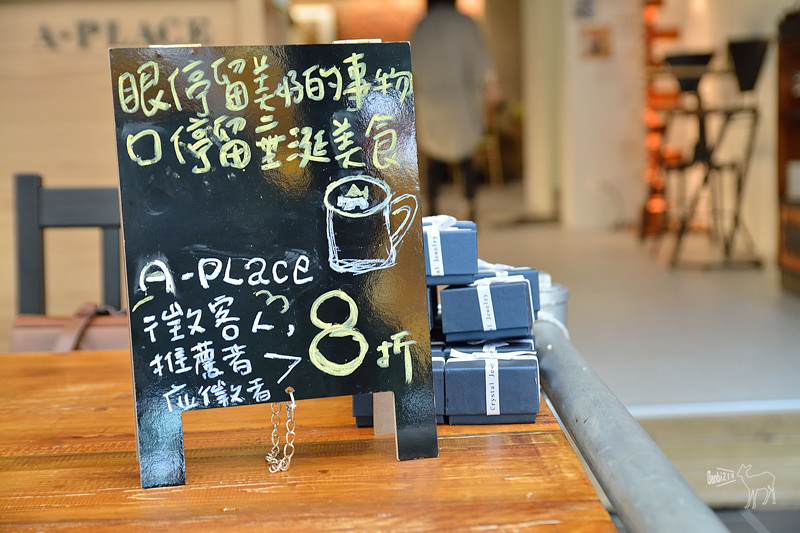 A·PLACE
眼停留美好的事物
口停留垂涎美食
A-PLACE
徵客人,
推薦者
应徵者 > 8折
Crystal Jewelry